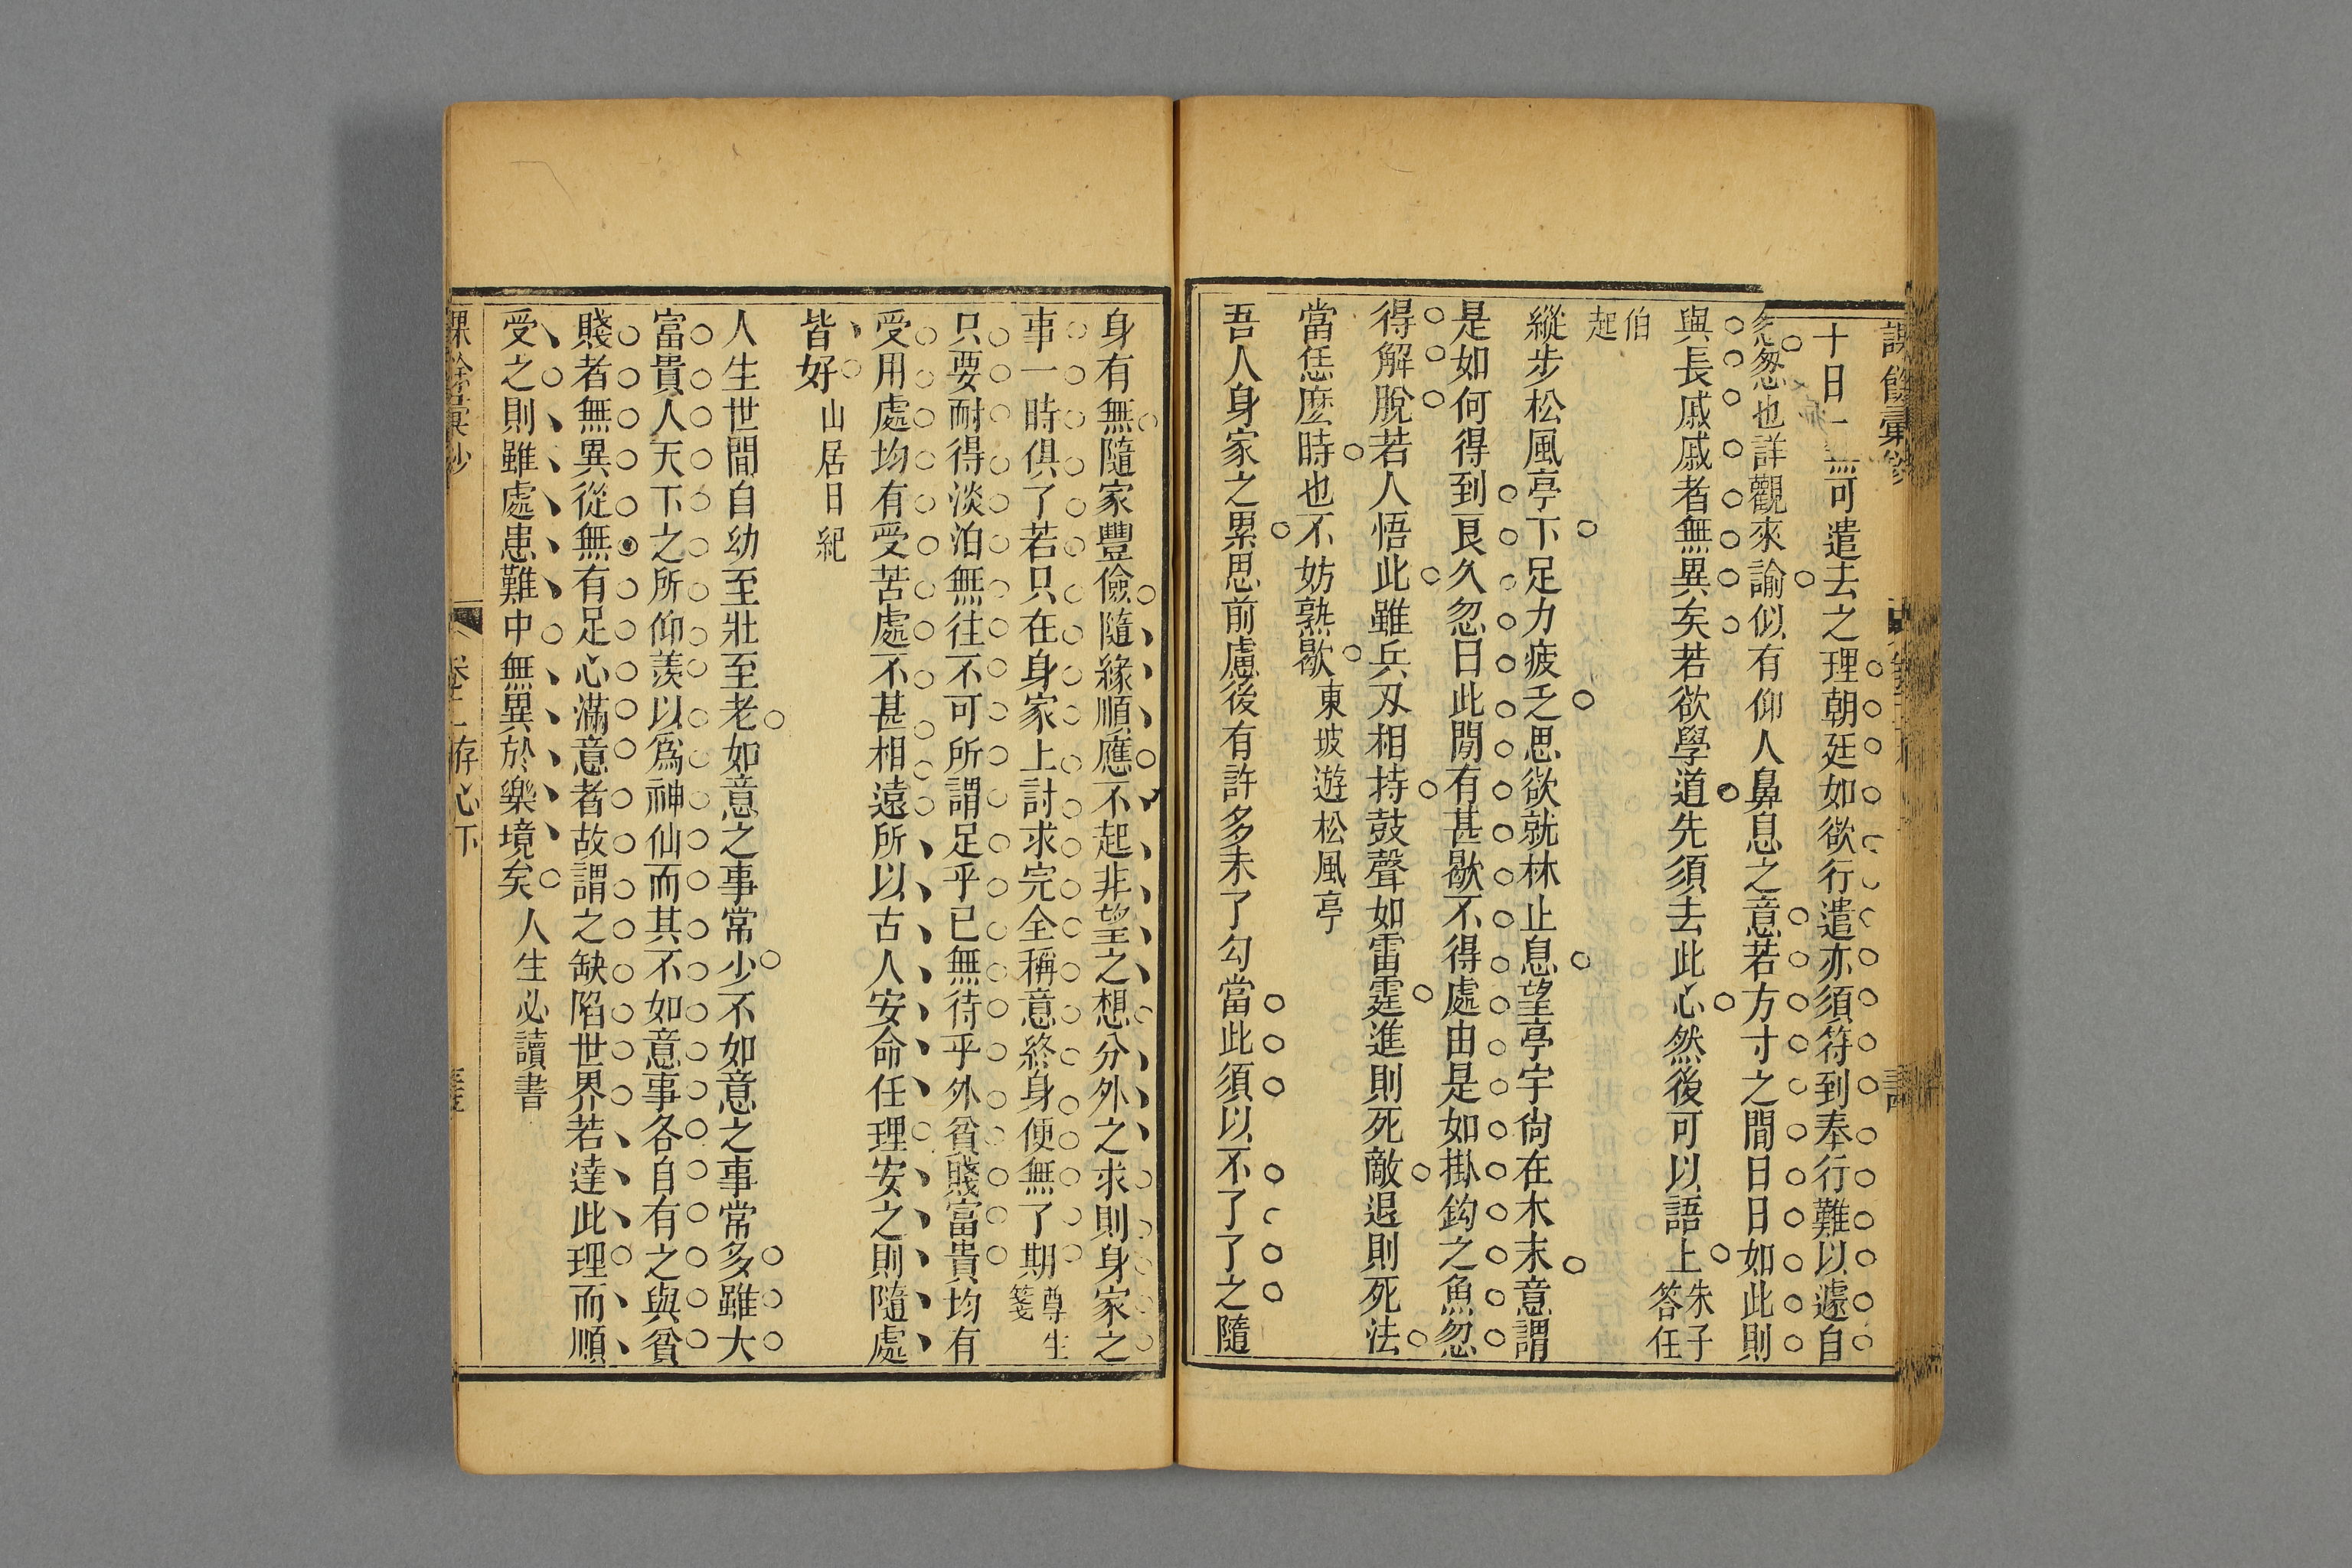 十日一無可遣去之理朝廷如欲行遣亦須符到奉行難以遽自
怱也詳觀來諭似有仰人鼻息之意若方寸之間日日如此則
與長戚戚者無異矣若欲學道先須去此心然後可以語上朱子答任
伯起
縱步松風亭下足力疲乏思欲就林止息望亭宇尙在木末意謂
是如何得到艮久忽曰此閒有甚歇不得處由是如掛鈎之魚忽
得解脫若人悟此雖兵刃相持鼓聲如雷霆進則死敵退則死法
當恁麽時也不妨熟歇東坡遊松風亭
吾人身家之累思前慮後有許多未了勾當此須以不了了之隨
身有無隨家豐儉隨緣順應不起非望之想分外之求則身家之
事一時俱了若只在身家上討求完全稱意終身便無了期尊生箋
只要耐得淡泊無往不可所謂足乎已無待乎外貧賤富貴均有
受用處均有受苦處不甚相遠所以古人安命任理安之則隨處
皆好山居日紀
人生世間自幼至壯至老如意之事常少不如意之事常多雖大
富貴人天下之所仰羨以爲神仙而其不如意事各自有之與貧
賤者無異從無有足心滿意者故謂之缺陷世界若達此理而順
受之則雖處患難中無異於樂境矣人生必讀書
存心下